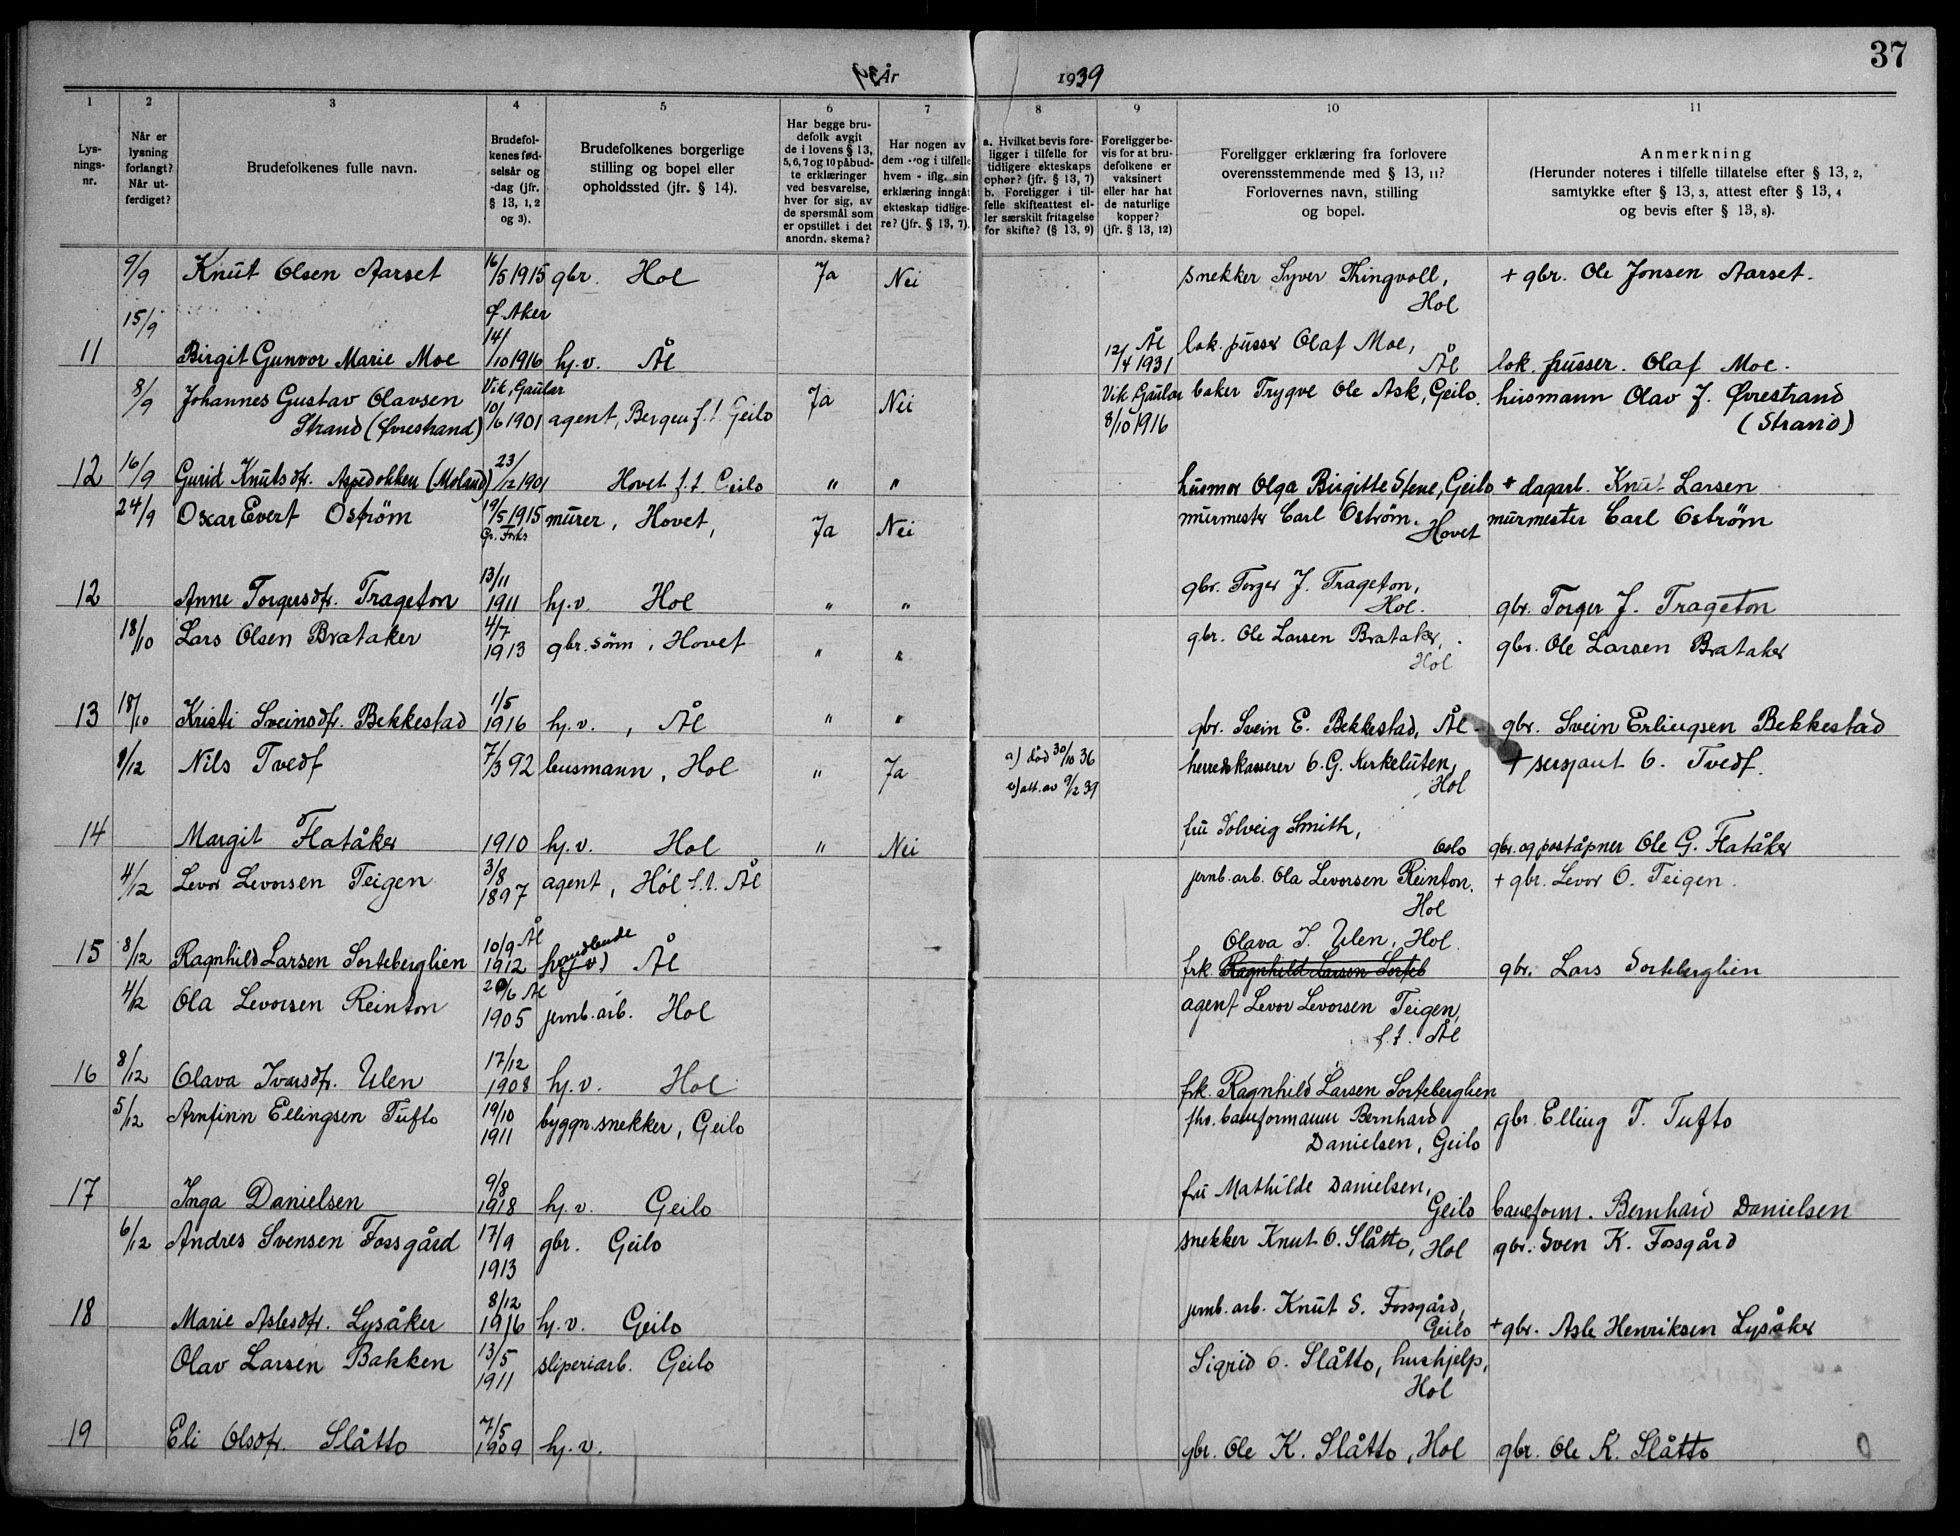 37
År 1939
1 2 3 4 5 6 7 8 9 10 11
Lys-
nings-
nr.
Når er
lysning
forlangt?
Når ut-
ferdiget?
Brudefolkenes fulle navn.
Brudefol-
kenes fød-
selsår og
-dag (jfr.
§ 13, 1, 2
og 3).
Brudefolkenes borgerlige
stilling og bopel eller
opholdssted (jfr. § 14).
Har begge bru-
defolk avgit
de i lovens § 13,
5, 6, 7 og 10 påbud-
te erklæringer
ved besvarelse,
hver for sig, av
de spørsmål som
er opstillet i det
anordn. skema?
Har nogen av
dem og i tilfelle
hvem - iflg. sin
erklæring inngåt
ekteskap tidlige-
re? (jfr. § 13, 7).
a. Hvilket bevis fore-
ligger i tilfelle for
tidligere ekteskaps
ophør? (jfr. § 13, 7)
b. Foreligger i til-
felle skifteattest el-
ler særskilt fritagelse
for skifte? (§ 13, 9)
Foreligger be-
vis for at bru-
defolkene er
vaksinert
eller har hat
de naturlige
kopper?
(jfr. § 13, 12)
Foreligger erklæring fra forlovere
overensstemmende med § 13, 11?
Forlovernes navn, stilling
og bopel.
Anmerkning
(Herunder noteres i tilfelle tillatelse efter § 13, 2,
samtykke efter § 13, 3, attest efter § 13, 4
og bevis efter § 13, 8).
9/9 Knut Olsen Aarset 16/5 1915 gbr. Hol Ja Nei snekker Syver Thingvoll, + gbr. Ole Jonsen Aarset.
Hol
15/9 f Aker
11 Birgit Gunvor Marie Moe 14/10 1916 hj.v. Ål Ål 12/4 1931 lok. pusser Olaf Moe, Ål lok. pusser. Olaf Moe.
8/9 Johannes Gustav Olavsen Vik, Gaular Ja Nei Vik, Gaular baker Trygve Ole Ask, Geilo. husmann Olav J. Øvrestrand
Strand (Øvrestrand) 10/6 1901 agent, Bergen f.t. Geilo 8/10 1916 (Strand)
12 16/9 Gurid Knutsdtr. Aspedokken (Molund) 23/12 1901 Hovet f.t. Geilo " " husmor Olga Birgitte Stene, Geilo + dagarb. Knut Larsen
24/9 Oscar Evert Oström 19/5 1915 murer, Hovet, Ja Nei murmester Carl Oström. Hovet murmester Carl Oström
Gr. Forks
12 Anne Torgersdtr. Trageton 13/11 1911 hj.v. Hol " " gbr. Torger J. Trageton, Hol. gbr. Torger J. Trageton
18/10 Lars Olsen Brataker 4/7 1913 gbr.sønn, Hovet " " gbr. Ole Larsen Brataker, Hol gbr. Ole Larsen Brataker
13 18/10 Kristi Sveinsdtr. Bekkestad 1/5 1916 hj.v., Ål " " gbr. Svein E. Bekkestad, Ål gbr. Svein Erlingsen Bekkestad
9/12 Nils Tvedt 7/3 92 busmann, Hol " Ja a) död 30/10 36 herredskasserer O.G. Kirkeluten, Hol + sersjant O. Tvedt.
b) att. av 9/2 39
14 Margit Flatåker 1910 hj.v. Hol " Nei fru Solveig Smith, Oslo gbr. og poståpner Ole G. Flatåker
4/12 Levor Levorsen Teigen 3/8 1897 agent, Hol f.t. Ål jernb.arb. Ola Levorsen Reinton, Hol + gbr. Levor O. Teigen.
Olava I. Ulen, Hol.
15 8/12 Ragnhild Larsen Sorteberglien 10/9 Ål 1912 handlende (hj.v) Ål frk. Ragnhild Larsen Sorteb gbr. Lars Sorteberglien
4/12 Ola Levorsen Reinton 20/6 Ål 1905 jernb.arb. Hol agent Levor Levorsen Teigen,
f.t. Ål
16 8/12 Olava Ivarsdtr. Ulen 17/12 1908 hj.v. Hol frk. Ragnhild Larsen Sorteberglien
5/12 Arnfinn Ellingsen Tufto 19/10 1911 byggn.snekker, Geilo fhv. baneformann Bernhard gbr. Elling T. Tufto
Danielsen, Geilo
17 Inga Danielsen 9/8 1918 hj.v. Geilo fru Mathilde Danielsen, Geilo baneform. Bernhard Danielsen
6/12 Andres Svensen Fossgård 17/9 1913 gbr. Geilo snekker Knut O. Slåtto, Hol gbr. Sven K. Fossgård
18 Marie Aslesdtr. Lysåker 8/12 1916 hj.v. Geilo jernb.arb. Knut S. Fossgård, Geilo + gbr. Asle Henriksen Lysåker
Olav Larsen Bakken 13/5 1911 sliperiarb. Geilo Sigrid O. Slåtto, hushjelp,
Hol
19 Eli Olsdtr. Slåtto 7/5 1909 hj.v. gbr. Ole K. Slåtto, Hol gbr. Ole K. Slåtto